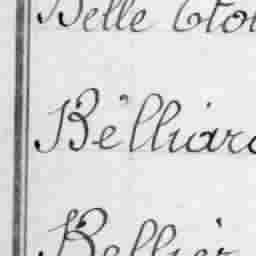 Belle Etoi
Bélliard
Bellier